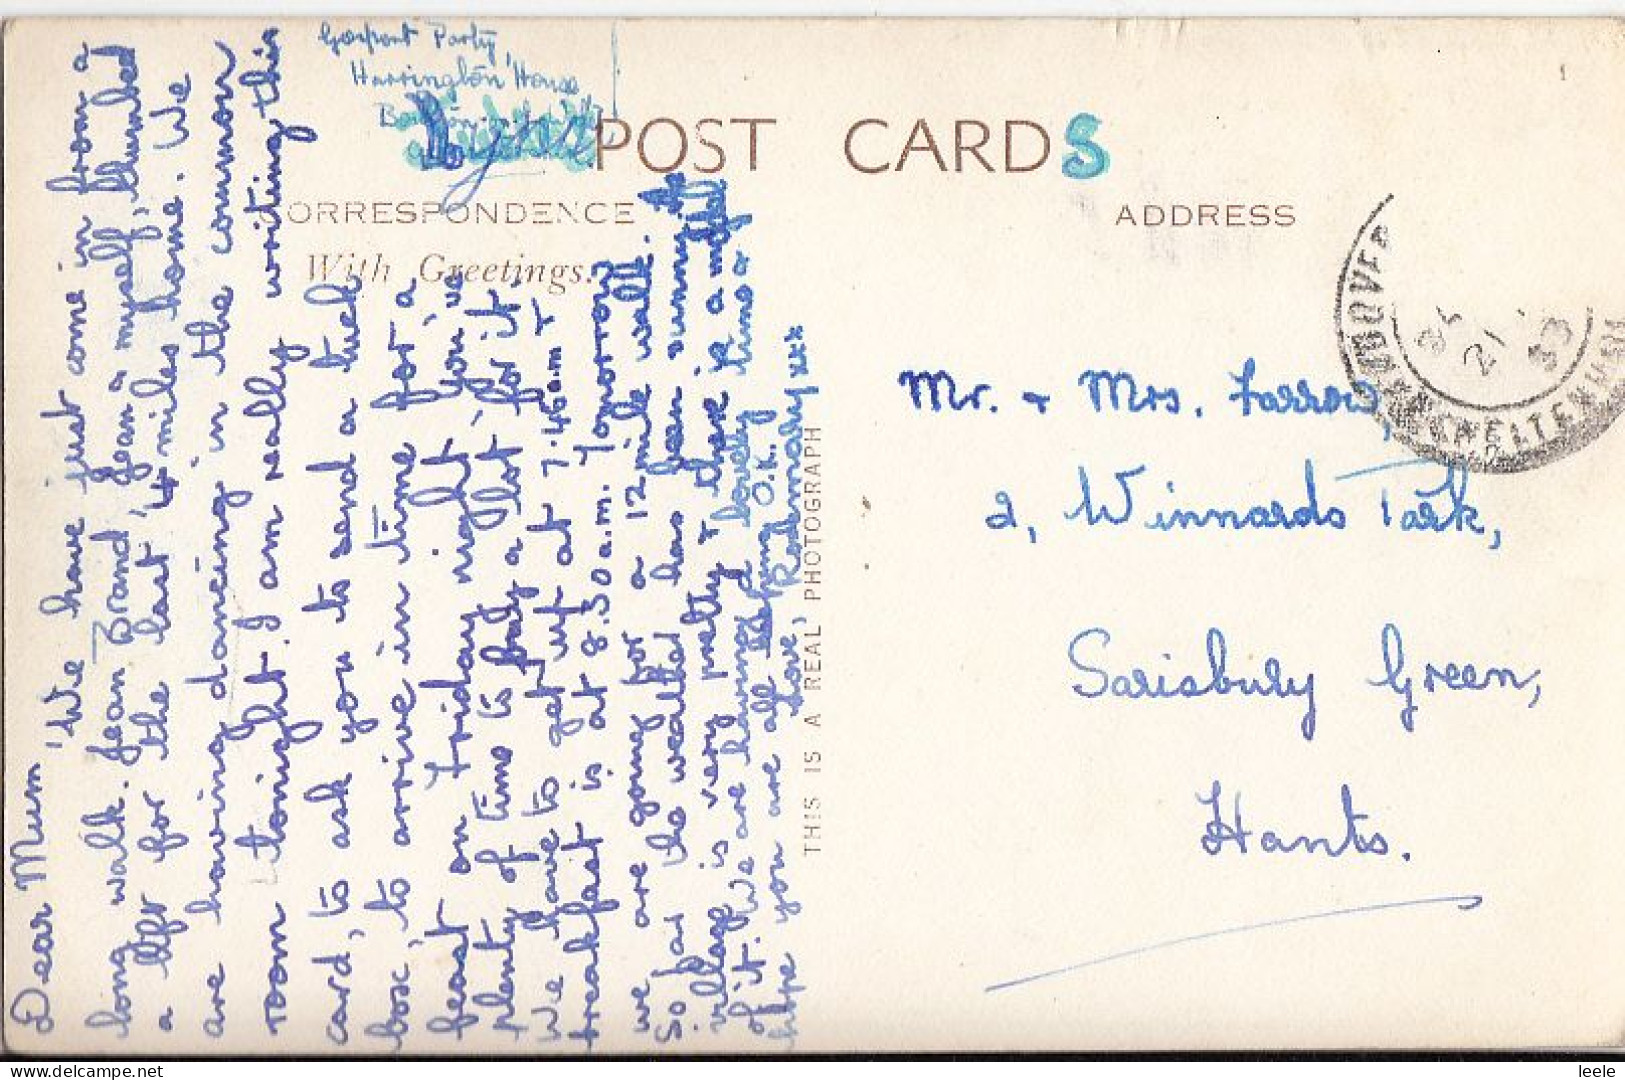 Gosport Party,
Harrington House
POST CARDS
CORRESPONDENCE
ADDRESS
With Greetings.
Dear Mum, We have just come in from a
long walk. Jean Brand, Jean & myself, thumbed
a lift for the last 4 miles home. We
are having dancing in the common
room tonight. I am really writing this
card, to ask you to send a tuck
box, to arrive in time for a
feast on Friday night, You've
plenty of time to buy a lot for it,
We have to get up at 7.45 a.m &
breakfast is at 8.30 a.m. Tomorrow
we are going for a 12 mile walk.
So far the weather has been sunny. The
village is very pretty & there is a
of it. We are having a lovely time &
hope you are all keeping O.K.
Love, Rosemary xxx
THIS IS A REAL PHOTOGRAPH
Mr. & Mrs. Farrow,
2, Winnards Park,
Sarisbury Green,
Hants.
CHELTENHAM
21
53
1
leele